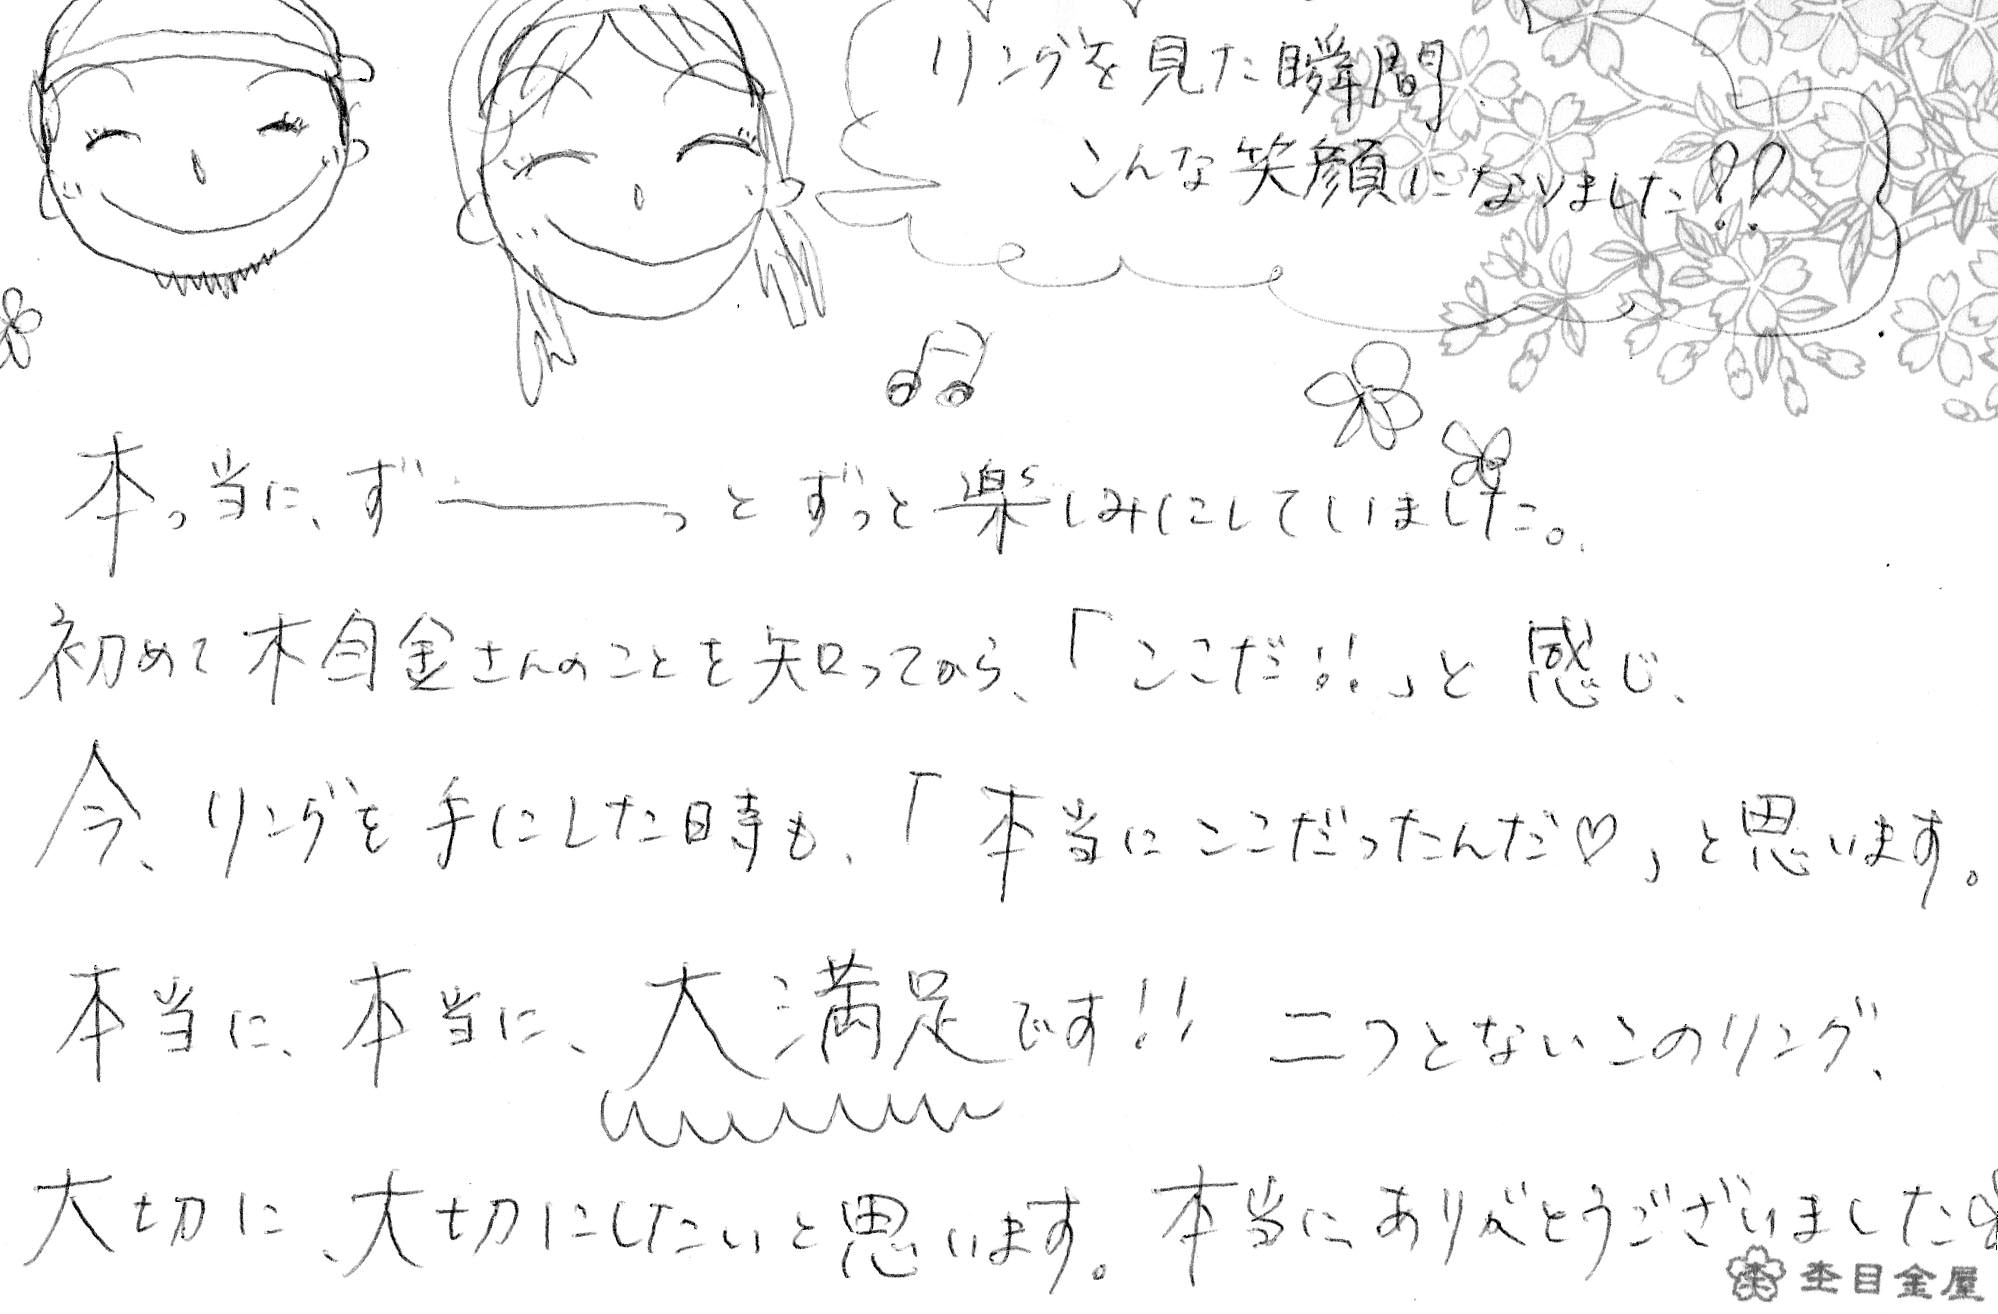 リングを見た瞬間
こんな笑顔になりました!?
本っ当に、ず―――っとずっと楽しみにしていました。
初めて木目金さんのことを知ってから、「ここだ!!」と感じ、
今、リングを手にした時も、「本当にここだったんだ♡」と思います。
本当に、本当に、大満足です!! 二つとないこのリング、
大切に、大切にしたいと思います。本当にありがとうございました
杢目金屋